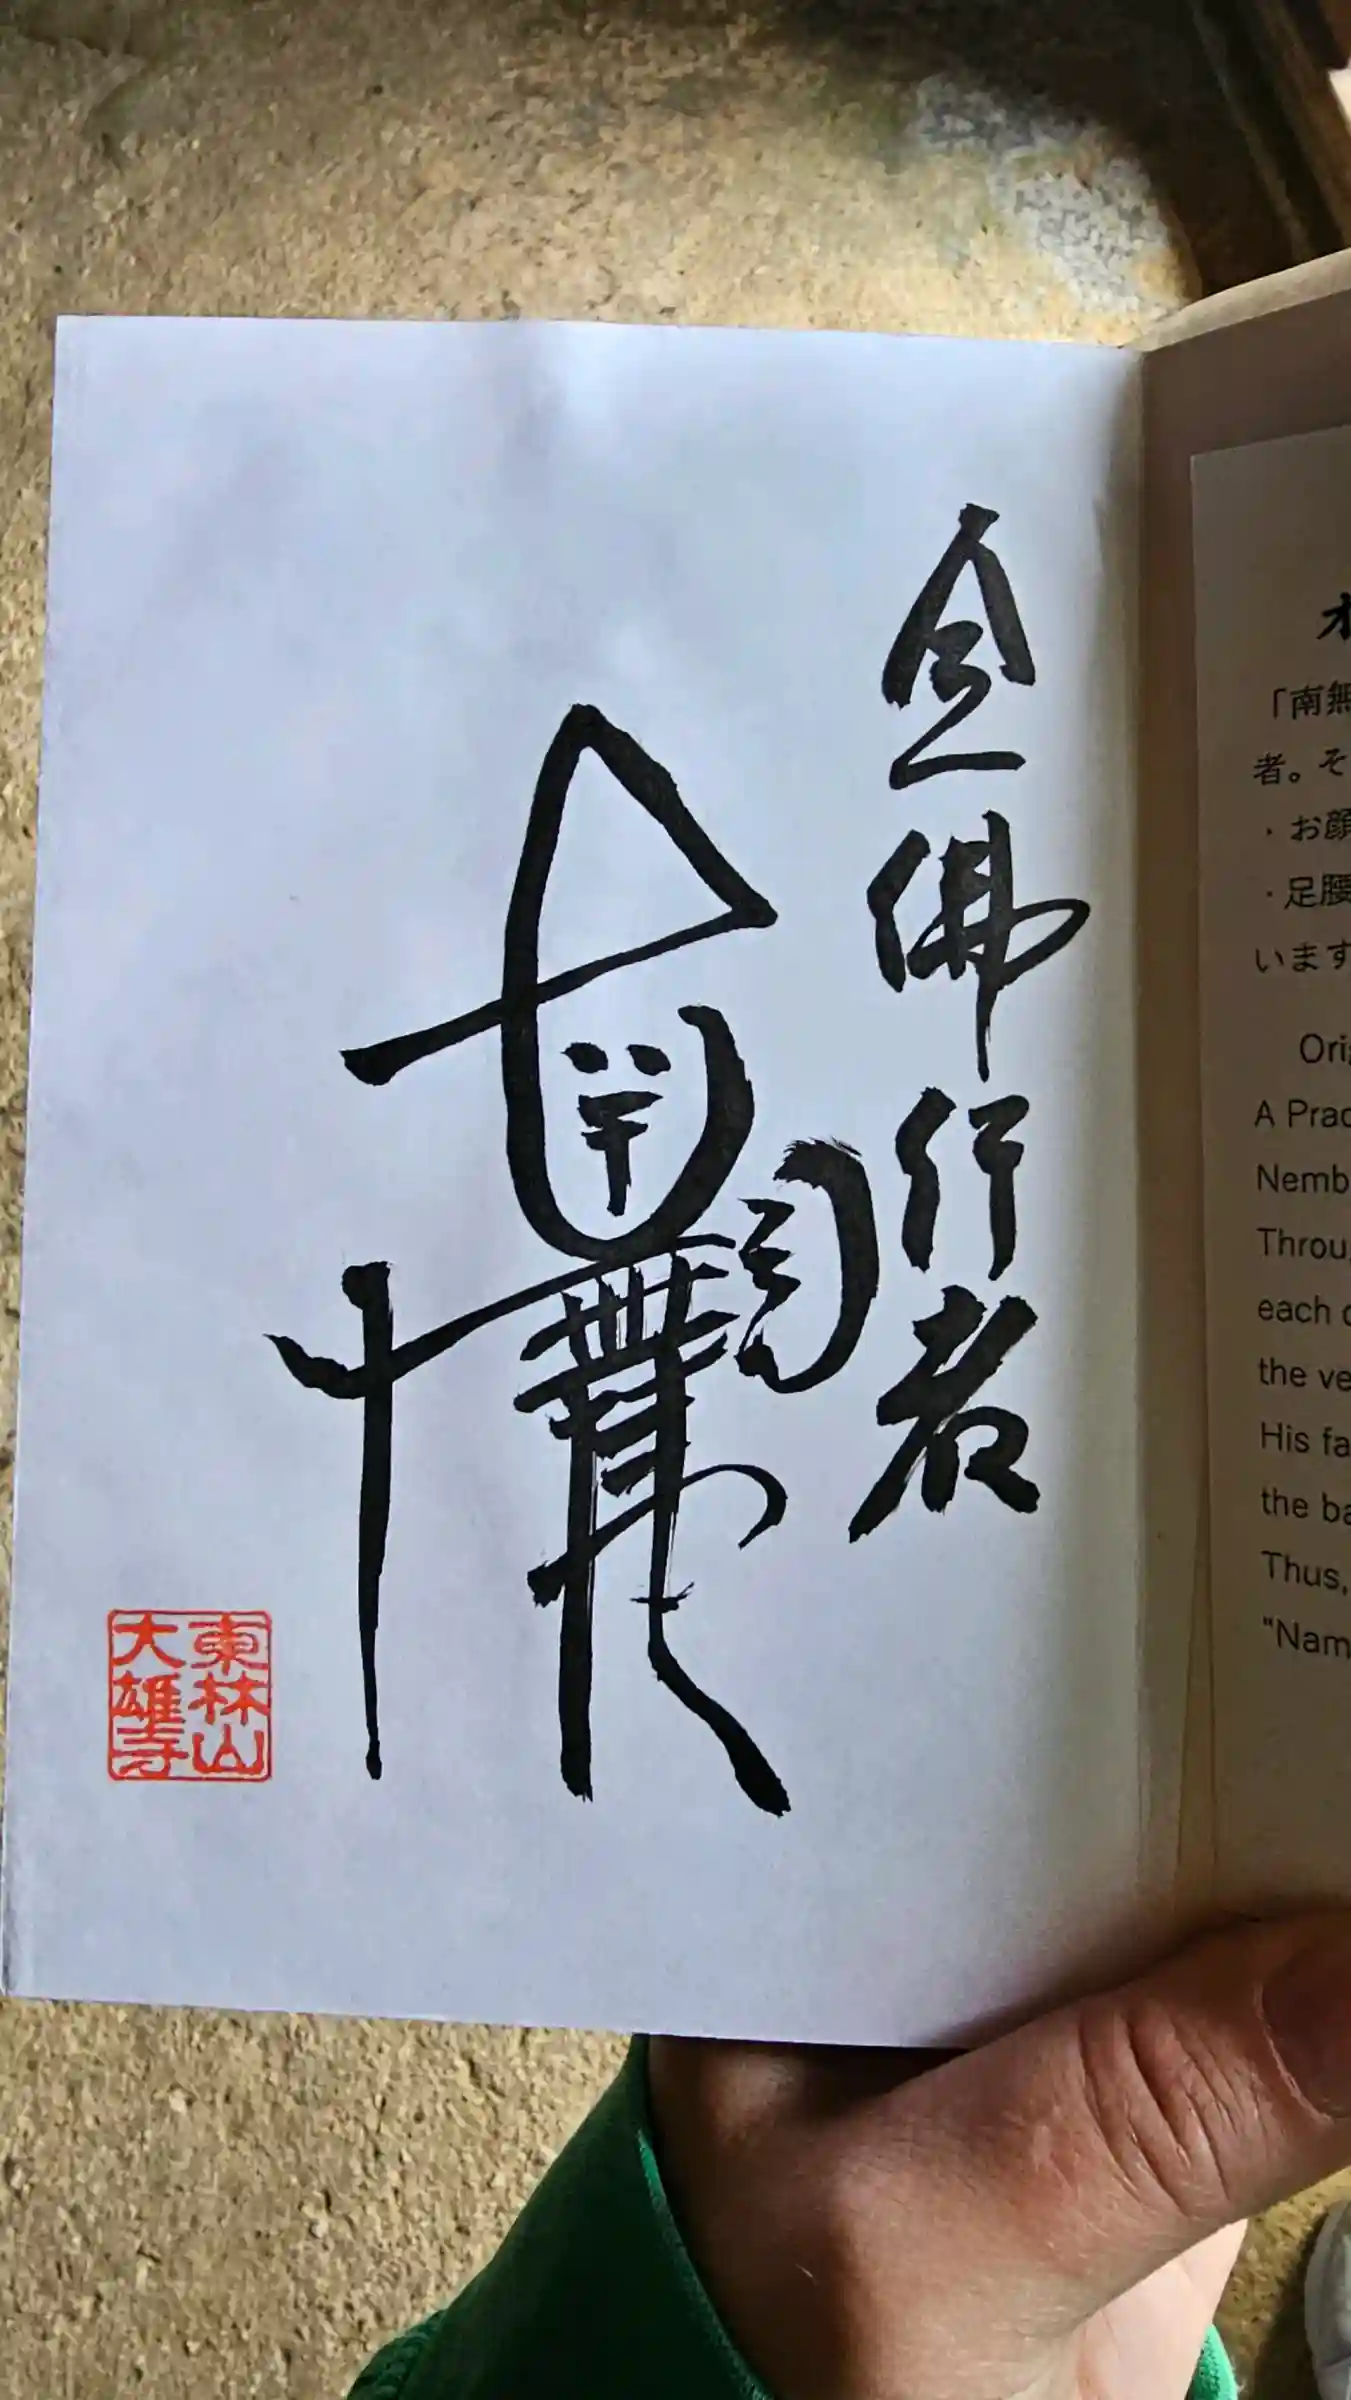 念佛行者
南無
東林山
大雄寺
「南無
者。そ
・お顔
・足腰
います
Ori
A Prac
Nemb
Throu
each
the ve
His fa
the ba
Thus,
"Nam